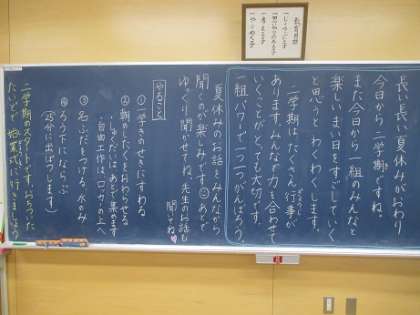 長い長い夏休みがおわり
今日から二学期ですね。
また今日から一組のみんなと
楽しいまい日をすごしていく
と思うとわくわくします。
二学期はたくさん行事が
あります。みんなで力を合わせて
いくことがとても大切です。
一組パワーで一つ一つがんばろう。
夏休みのお話をみんなから
聞くのが楽しみです☺あとで
ゆっくり聞かせてね。先生のお話も
聞いてね
やること
①一学きのせきにすわる
②朝のしたくをおわらせる
しゅくだいはあとで集めます
・自由工作はロッカーの上へ
③名ふだをつける、水のみ
④ろう下にならぶ
(25分に出ぱつします)
二学期スタートです。おちついた
たいどで始業式に行きましょう